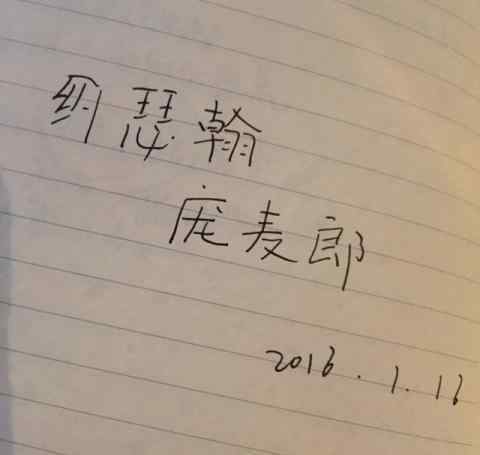 约瑟翰
庞麦郎
2016.1.16